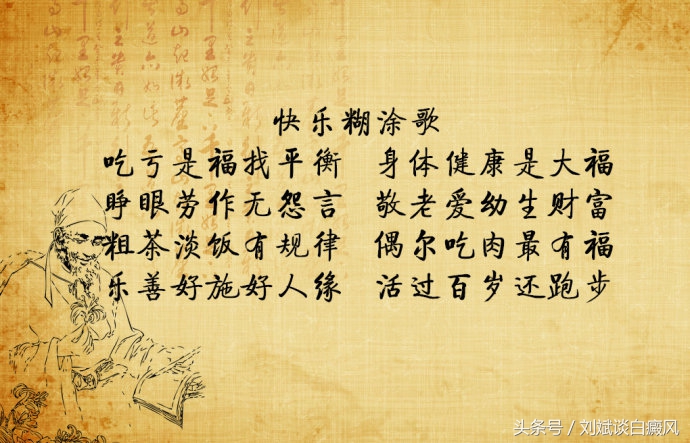 快乐糊涂歌
吃亏是福找平衡 身体健康是大福
睁眼劳作无怨言 敬老爱幼生财富
粗茶淡饭有规律 偶尔吃肉最有福
乐善好施好人缘 活过百岁还跑步
头条号／刘斌谈白癜风